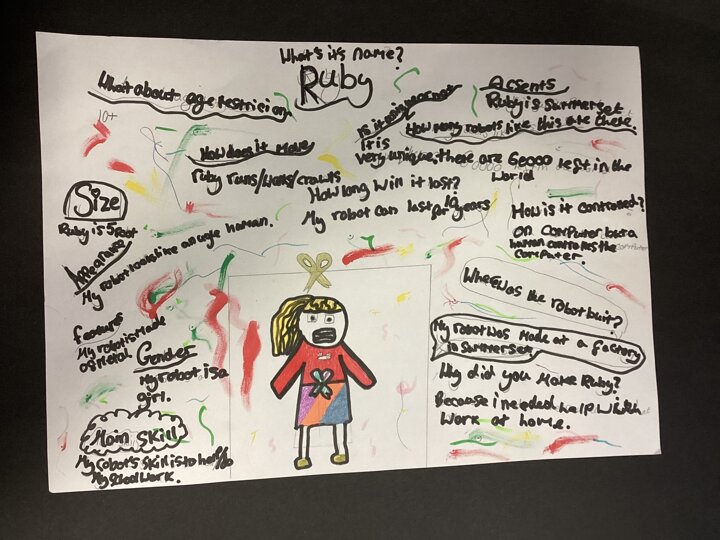 What's it's name?
Ruby
What about age restricion.
10+
How does it move
ruby runs/walks/crawls
Is it
It is
very unique, there are 60000 rest in the
world
Acsents
Ruby is Summerset
How many robots like this are there.
How long will it last?
My robot can last for 10 years
How is it controwed?
On computer but a
human controles the
computer.
Size
Ruby is 5 foot
Appearance
My robot looks like an average human.
features
My robot is made
of metal
Gender
My robot is a
girl.
Main skill
My robots skill is to help do
My school work.
Where was the robot buit?
My robot was made at a factory
in Summerset
Why did you make Ruby?
Because i needed help with
work at home.